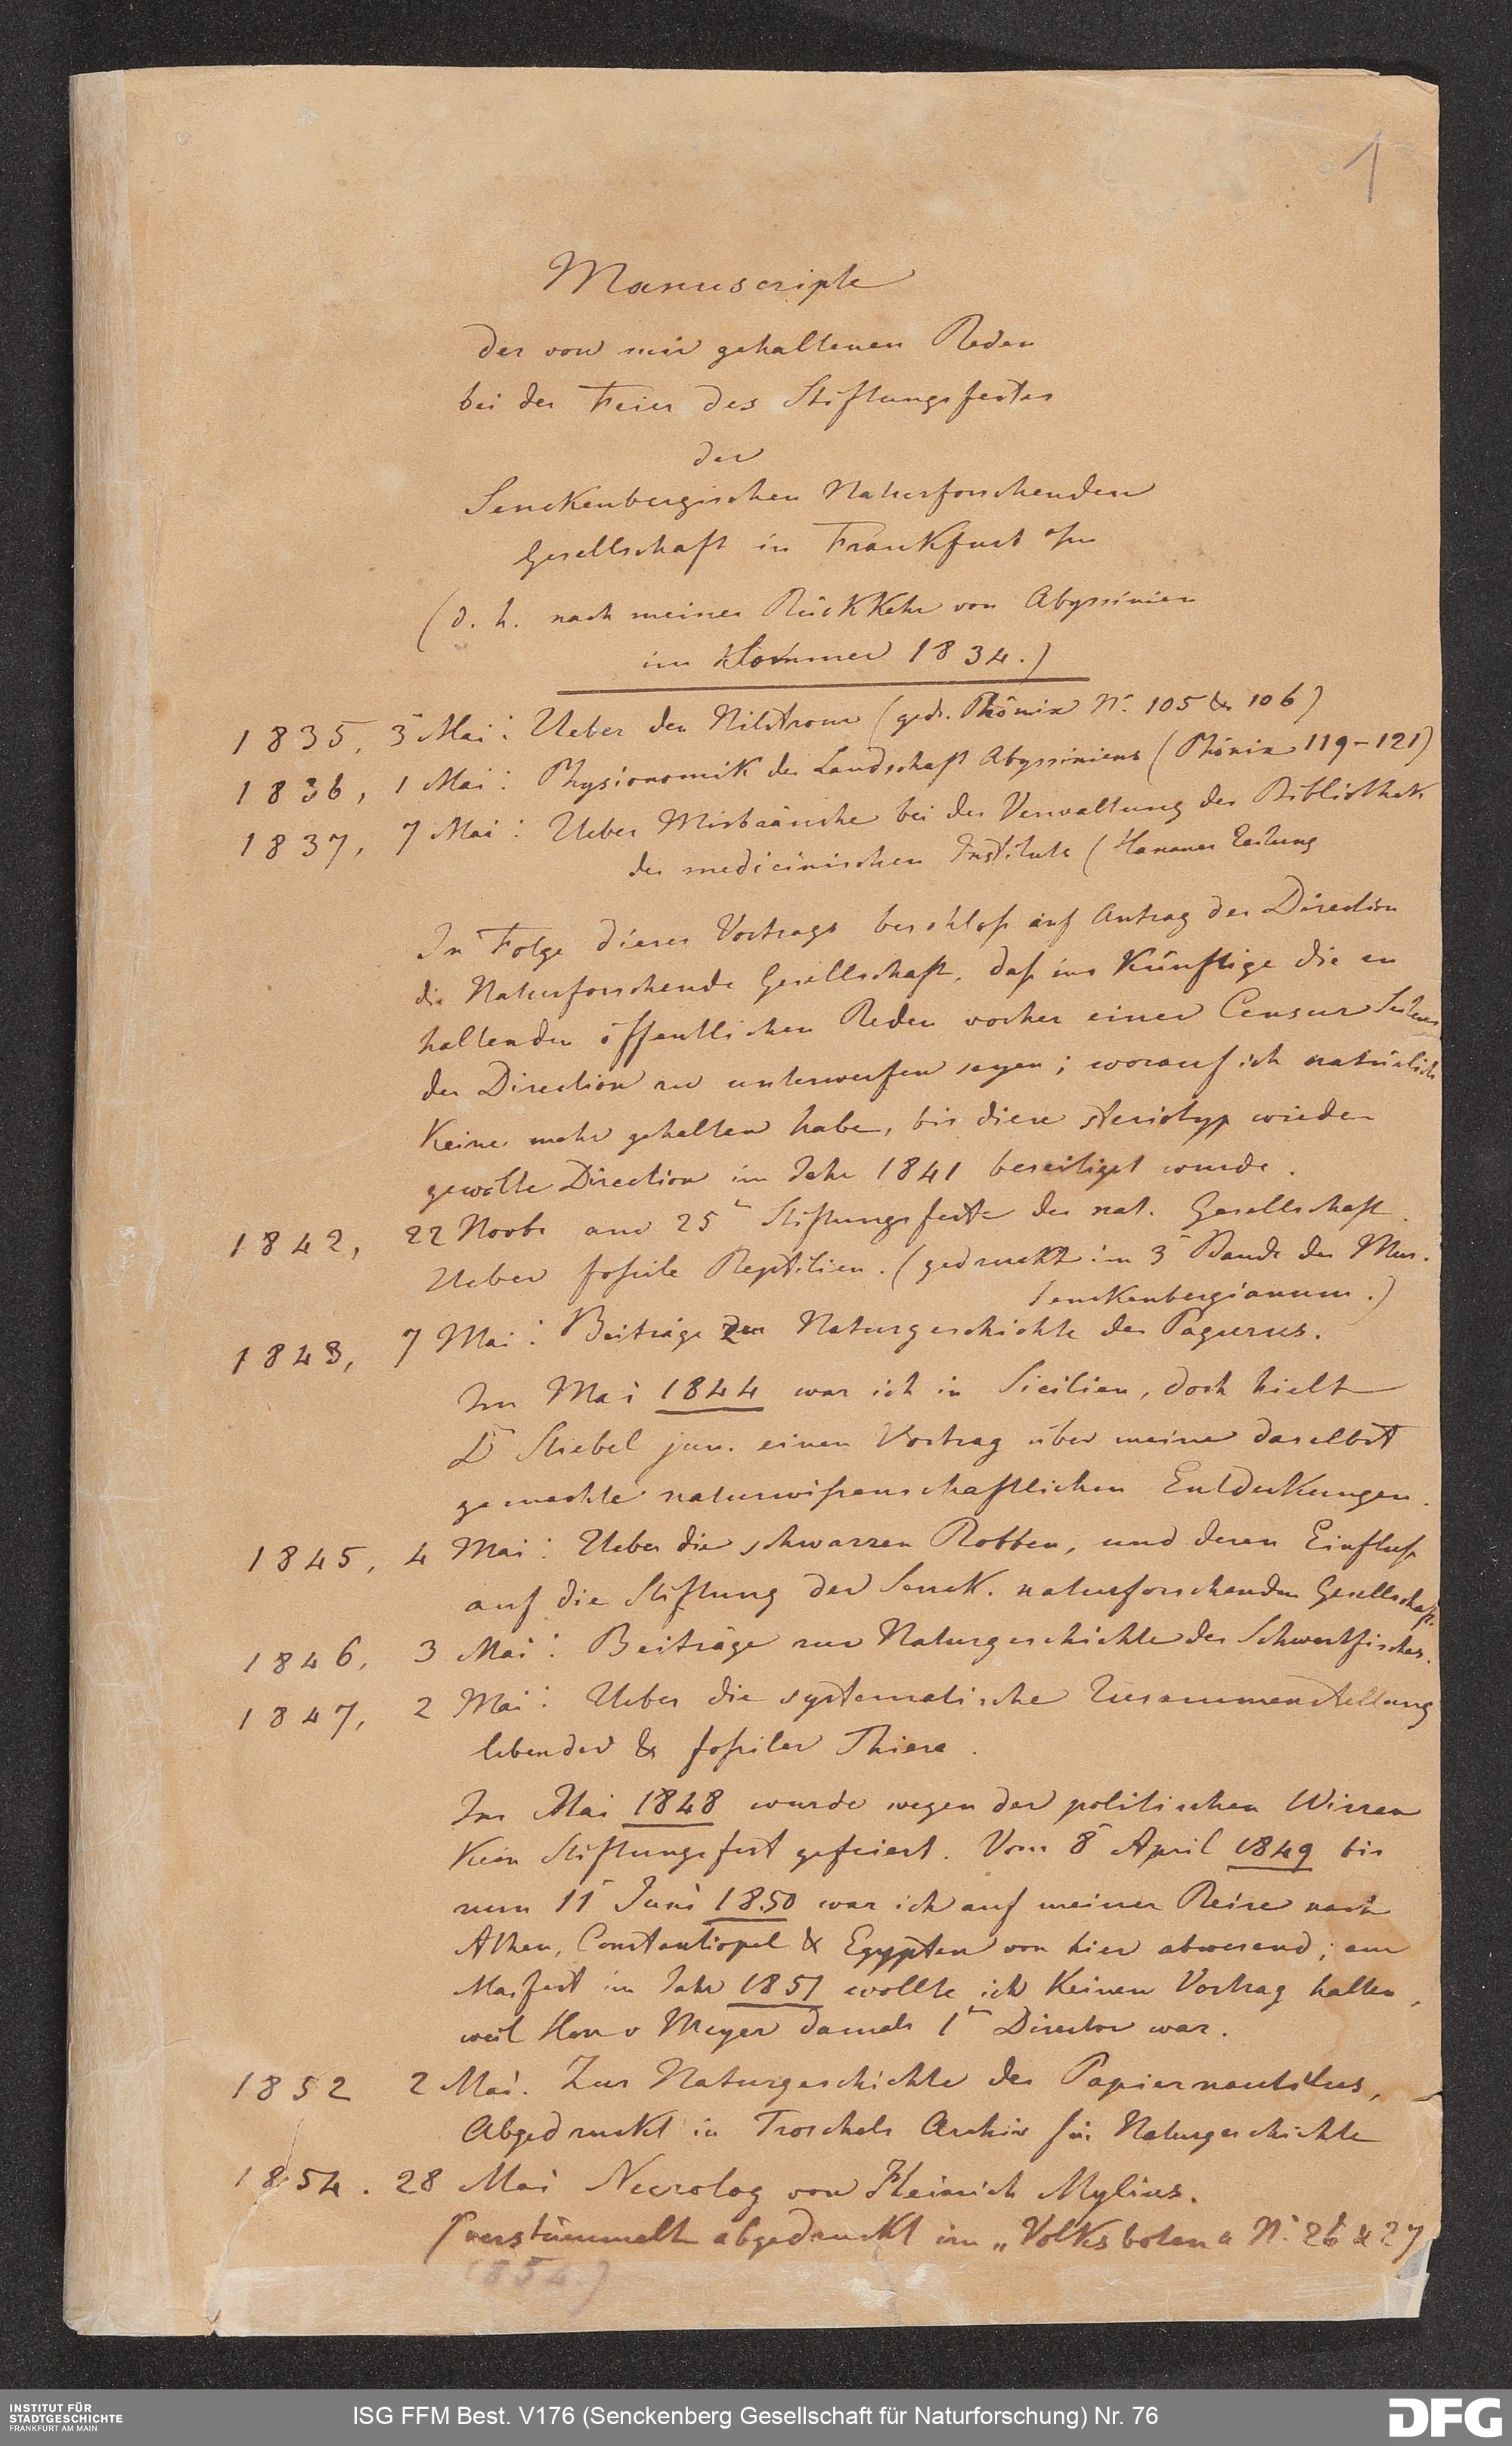 1
Manuscripte
der von mir gehaltenen Reden
bei der Feier des Stiftungsfestes
der
Senckenbergischen Naturforschenden
Gesellschaft in Frankfurt a/m
(d. h. nach meiner Rückkehr von Abyssinien
im Sommer 1834.)
1835, 3 Mai: Ueber den Nilstrom (gedr. Phönix N. 105 & 106)
1836, 1 Mai: Physionomik der Landschaft Abyssiniens (Phönix 119-121)
1837, 7 Mai: Ueber Misbräuche bei der Verwaltung der Bibliothek
des medicinischen Instituts (Hanauer Zeitung
In Folge dieses Vortrags beschloß auf Antrag der Direction
die Naturforschende Gesellschaft, daß ins Künftige die zu
haltenden öffentlichen Reden vorher einer Censur Seitens
der Direction zu unterwerfen seyen; worauf ich natürlich
Keine mehr gehalten habe, bis diese steriotyp wieder
gewälte Direction im Jahr 1841 beseitiget wurde.
1842, 22 Novbr am 25 Stiftungsfeste der nat. Gesellschaft.
Ueber foßile Reptilien. (gedruckt im 3 Bande des Mus.
Senckenbergianum.)
1843, 7 Mai: Beiträge zur Naturgeschichte des Pagurus.
Im Mai 1844 war ich in Sicilien, doch hielt
Dr Stiebel jun. einen Vortrag über meine daselbst
gemachte naturwißenschaftlichen Entdeckungen.
1845, 4 Mai: Ueber die schwarzen Robben, und deren Einfluß
auf die Stiftung der Senck. naturforschenden Gesellschaft.
1846, 3 Mai: Beiträge zur Naturgeschichte des Schwertfisches.
1847, 2 Mai: Ueber die systematische Zusammenstellung
lebender & foßiler Thiere.
Im Mai 1848 wurde wegen der politischen Wirren
Kein Stiftungsfest gefeiert. Vom 8 April 1849 bis
zum 11 Juni 1850 war ich auf meiner Reise nach
Athen, Constantiopel & Egypten von hier abwesend; am
Maifest im Jahr 1851 wollte ich Keinen Vortrag halten,
weil Herr v Meyer damals 1r Director war.
1852 2 Mai. Zur Naturgeschichte des Papiernautilus,
Abgedruckt in Troschels Archiv für Naturgeschichte
1854. 28 Mai Necrolog von Heinrich Mylius.
(verstümmelt abgedruckt im „Volksboten" N. 26 & 27
1854.)
INSTITUT FÜR
STADTGESCHICHTE
FRANKFURT AM MAIN
ISG FFM Best. V176 (Senckenberg Gesellschaft für Naturforschung) Nr. 76
DFG